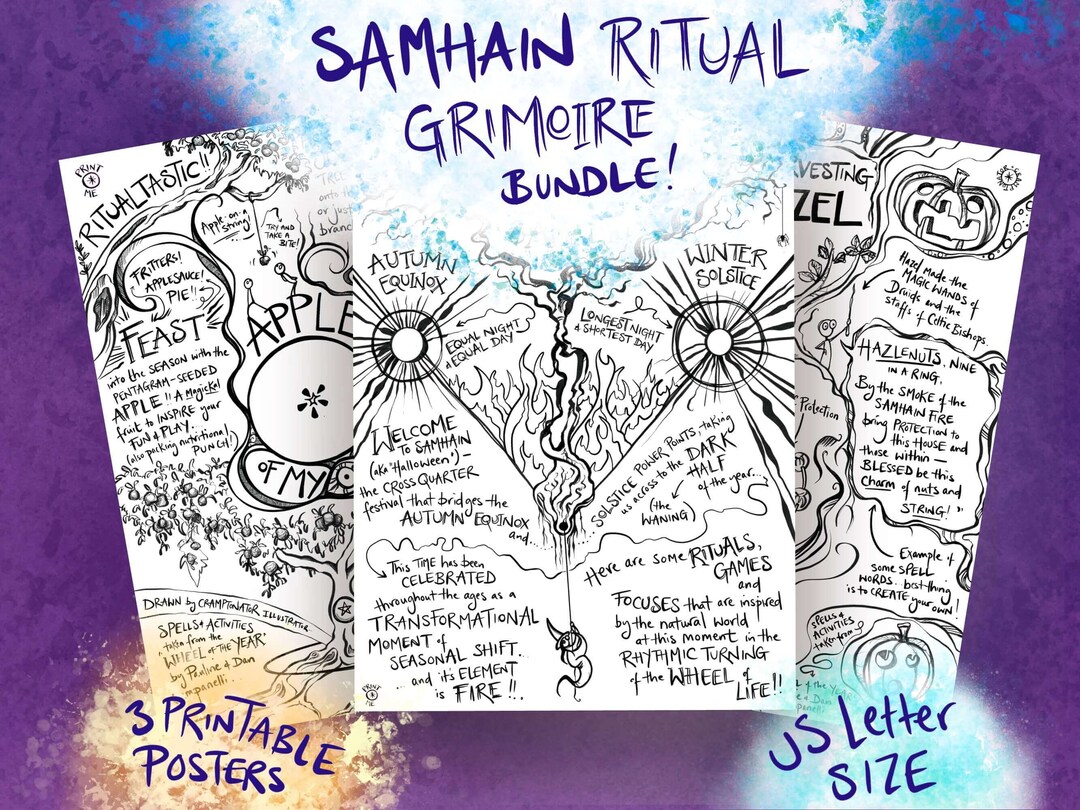 SAMHAIN RITUAL
GRIMOIRE
BUNDLE!
PRINT
ME
RITUALTASTIC!!
FRITTERS!
APPLESAUCE!
PIE!!
FEAST
into the SEASON with the
PENTAGRAM-SEEDED
APPLE!! A Magickal
fruit to INSPIRE your
FUN & PLAY...
(also packing nutritional
PUNCH!)
Apple-on-a
string!
TRY AND
TAKE A
BITE!
or just
branc
APPLE
OF MY
DRAWN by CRAMPTONATOR ILLUSTRATOR
SPELLS & ACTIVITIES
taken from the
'WHEEL of THE YEAR'
by Pauline & Dan
mpanelli.
AUTUMN
EQUINOX
EQUAL NIGHT
& EQUAL DAY
WINTER
SOLSTICE
LONGEST NIGHT
& SHORTEST DAY
WELCOME
TO SAMHAIN
(aka 'Halloween') -
the CROSS QUARTER
festival that bridges the
AUTUMN EQUINOX
and...
SOLSTICE POWER POINTS - taking
us access to the DARK
HALF
of the year...
(the
WANING)
This TIME has been
CELEBRATED
throughout the ages as a
TRANSFORMATIONAL
MOMENT of
SEASONAL SHIFT...
... and it's ELEMENT
is FIRE!!
PRINT
ME
Here are some RITUALS,
GAMES
and
FOCUSES that are inspired
by the natural world
at this moment in the
RHYTHMIC TURNING
of the WHEEL of
LIFE!!
VESTING
ZEL
Hazel made the
MAGIC WANDS of
Druids and the
staffs of Celtic Bishops.
Protection
HAZLENUTS, NINE
IN A RING,
By the SMOKE of the
SAMHAIN FIRE
bring PROTECTION to
this HOUSE and
those within -
BLESSED be this
Charm of nuts and
STRING!"
Example of
some SPELL
WORDS... best thing
is to CREATE your own!
SPELLS &
ACTIVITIES
taken from
of the YEAR
& Dan
mpanelli
3 PRINTABLE
POSTERS
US Letter
SIZE